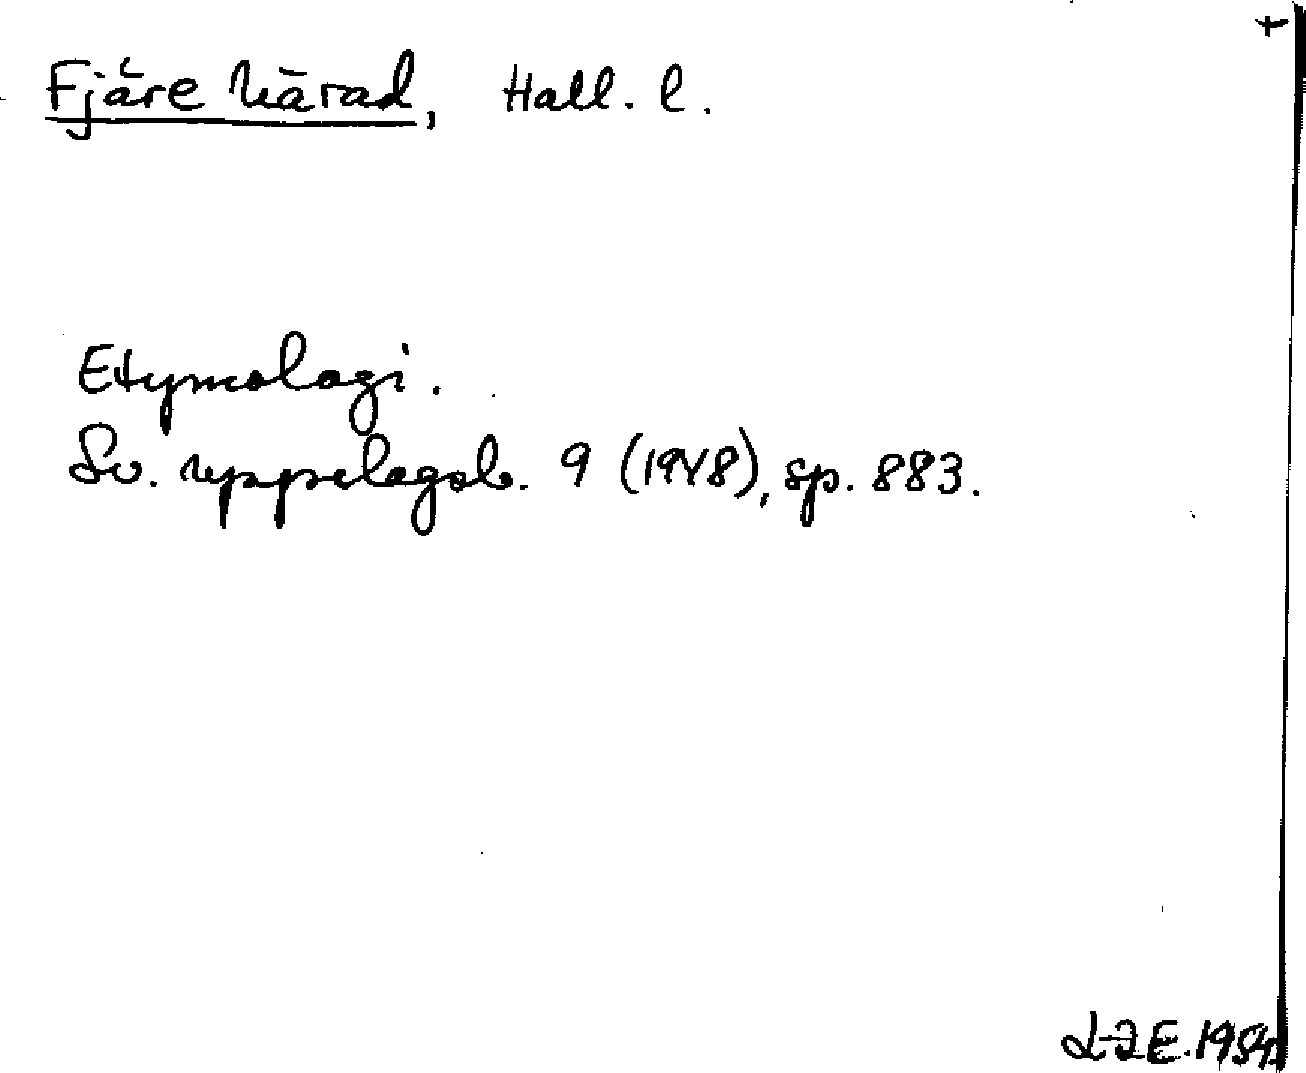 +
Fjäre härad, Hall. l.
Etymologi.
Sv. uppslagsb. 9 (1948), sp. 883.
1954